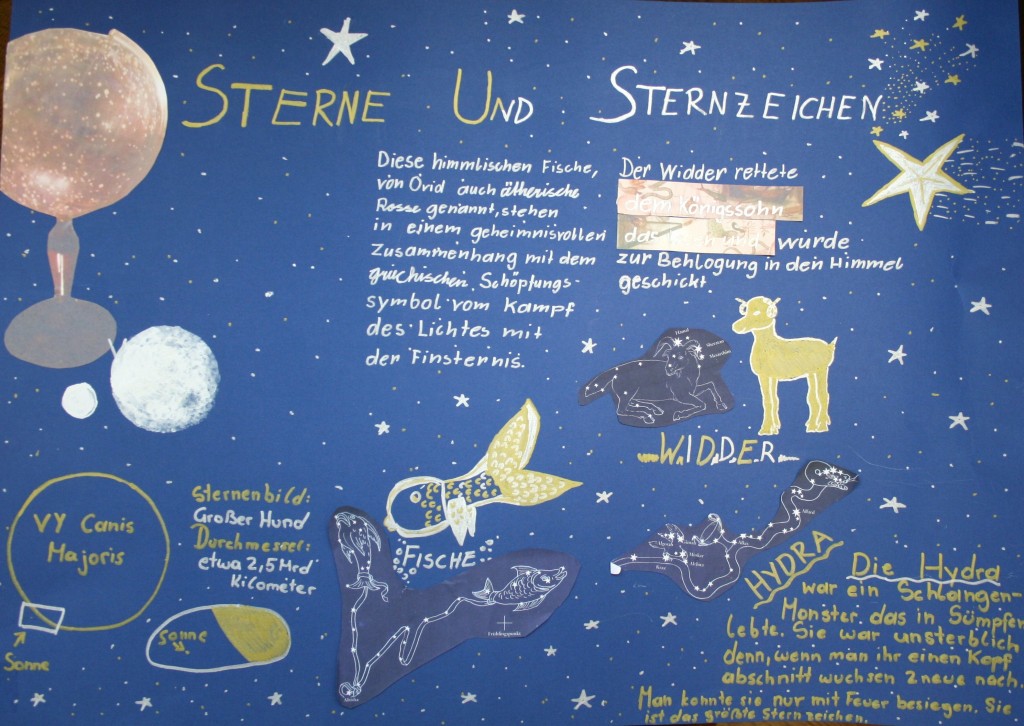 STERNE UND STERNZEICHEN
Diese himmlischen Fische,
von Ovid auch ätherische
Rosse genannt, stehen
in einem geheimnisvollen
Zusammenhang mit dem
griechischen Schöpfungs-
symbol vom Kampf
des Lichtes mit
der Finsternis.
Der Widder rettete
dem Königssohn
das und wurde
zur Behlogung in den Himmel
geschickt.
WIDDER
VY Canis
Majoris
Sonne
Sternenbild:
Großer Hund
Durchmesser:
etwa 2,5 Mrd
Kilometer
Sonne
FISCHE
Frühlingspunkt
HYDRA
Die Hydra
war ein Schlangen-
Monster das in Sümpfen
lebte. Sie war unsterblich
denn, wenn man ihr einen Kopf
abschnitt wuchsen 2 neue nach.
Man konnte sie nur mit Feuer besiegen. Sie
ist das größte Sternzeichen.